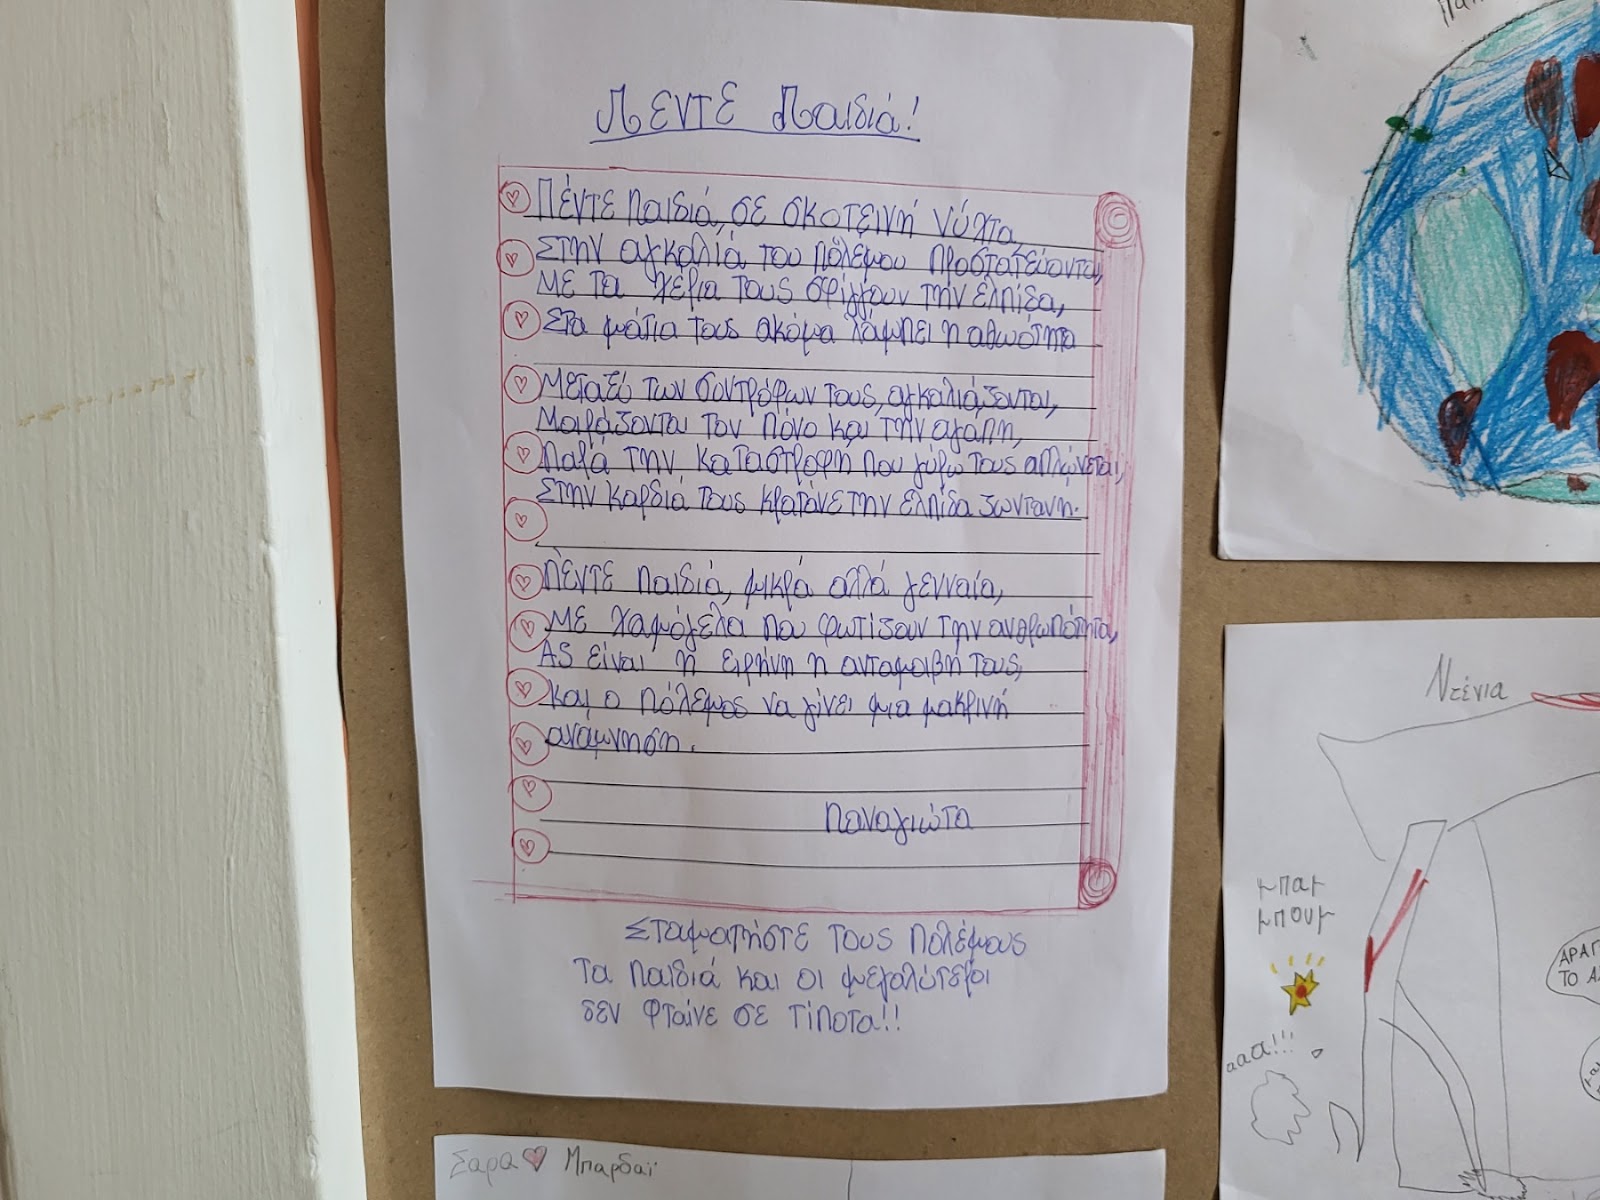 Πέντε Παιδιά!
Πέντε παιδιά, σε σκοτεινή νύχτα,
Στην αγκαλιά του πόλεμου προστατεύονται,
Με τα χέρια τους σφίγγουν την ελπίδα,
Στα μάτια τους ακόμα λάμπει η αθωότητα
Μεταξύ των συντρόφων τους, αγκαλιάζονται,
Μοιράζονται τον πόνο και την αγάπη,
Παρά την καταστροφή που γύρω τους απλώνεται,
Στην καρδιά τους κρατάνε την ελπίδα ζωντανή.
Πέντε παιδιά, μικρά αλλά γενναία,
Με χαμόγελα που φωτίζουν την ανθρωπότητα,
Ας είναι η ειρήνη η ανταμοιβή τους,
και ο πόλεμος να γίνει μια μακρινή
αναμνηση.
Παναγιώτα
Σταματήστε τους πολέμους
Τα παιδιά και οι μεγαλύτεροι
δεν φταίνε σε τίποτα!!
Σαρα Μπαρδαϊ
Ντένια
μπαμ
μπουμ
ααα!!!
ΤΟ